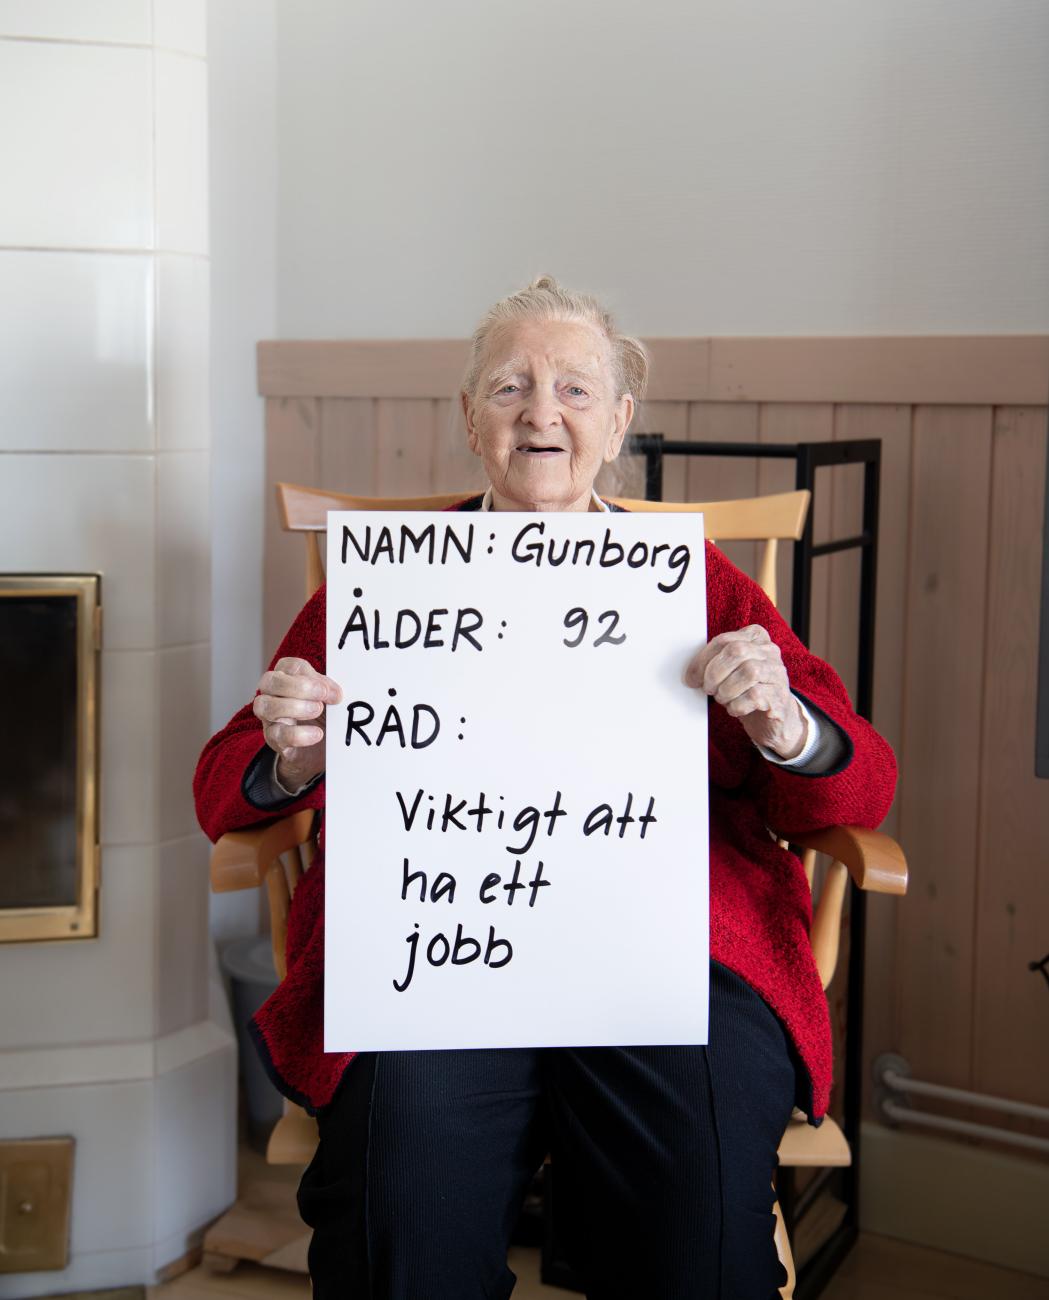 NAMN: Gunborg
ÅLDER: 92
RÅD:
Viktigt att
ha ett
jobb